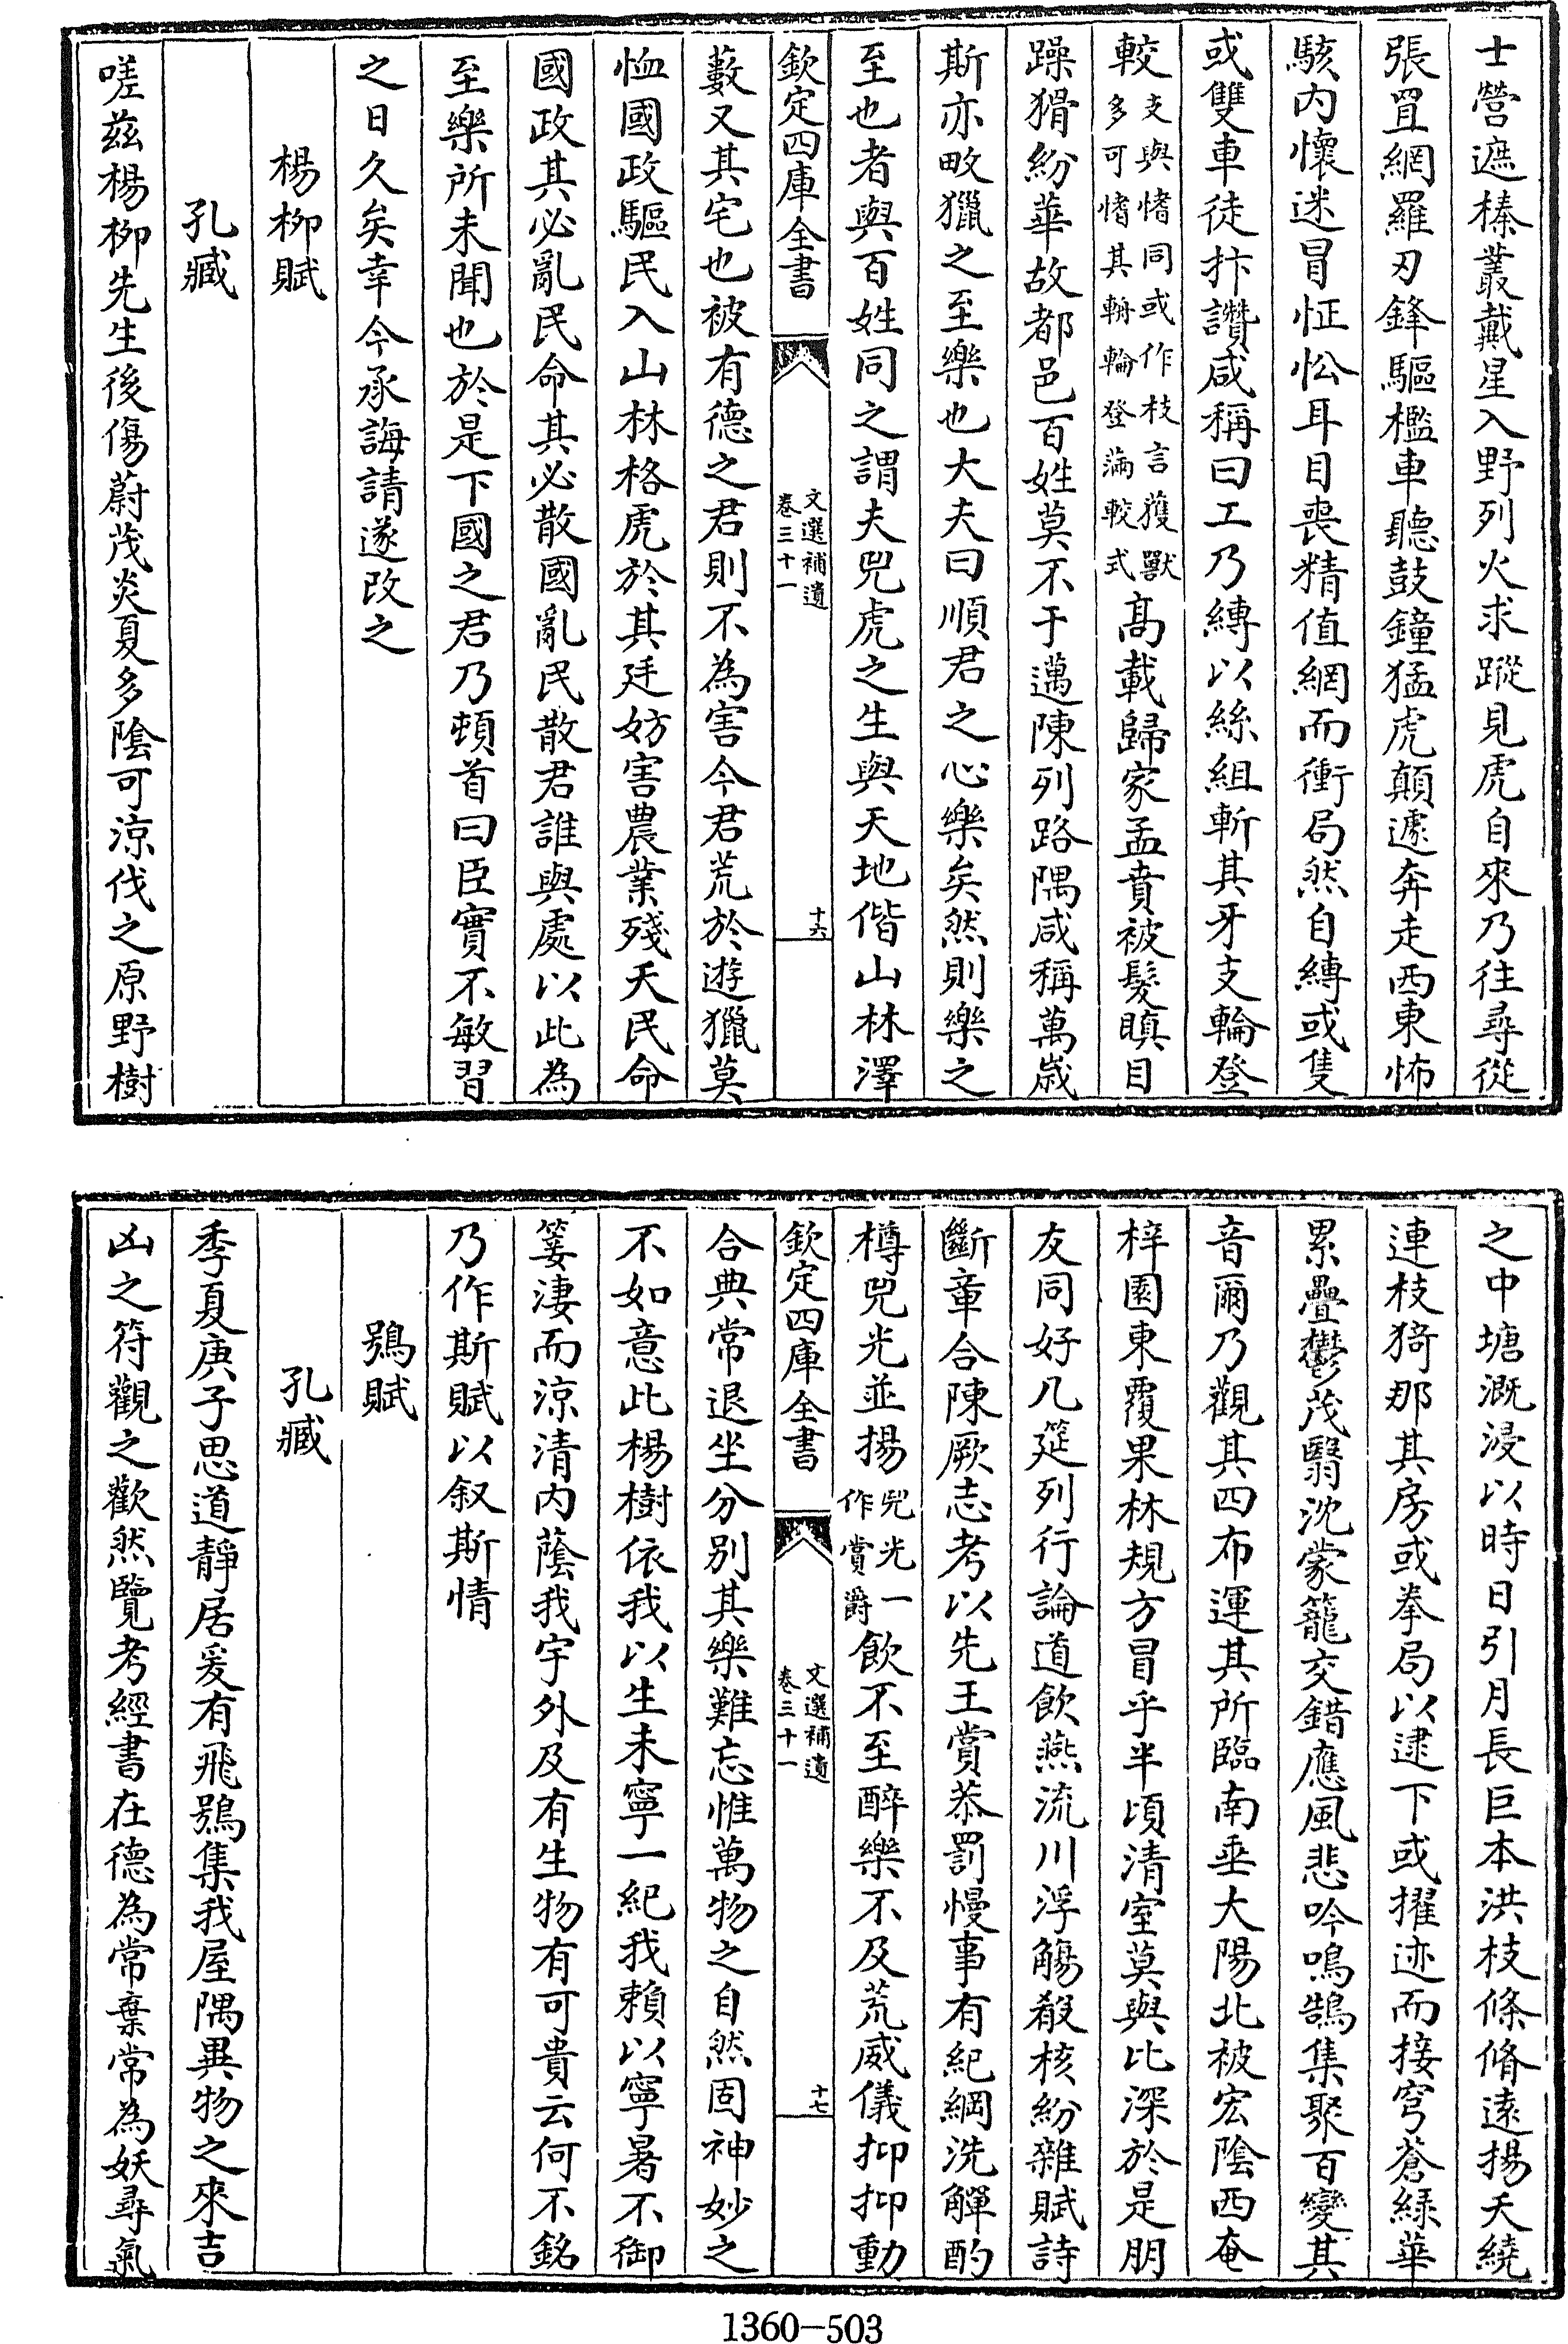 士營遮榛叢戴星入野列火求蹤見虎自來乃往尋從
張罝網羅刃鋒驅檻車聽鼓鐘猛虎顛遽奔走西東怖
駭内懷迷冒怔忪耳目喪精值網而衝局然自縛或隻
或雙車徒抃讚咸稱曰工乃縛以絲組斬其牙支輪登
較支與㮰同或作枝言獲獸多可㮰其輈輪登滿較式高載歸家孟賁被髮瞋目
躁猾紛華故都邑百姓莫不于邁陳列路隅咸稱萬歳
斯亦畋獵之至樂也大夫曰順君之心樂矣然則樂之
至也者與百姓同之謂夫兕虎之生與天地偕山林澤
欽定四庫全書
文選補遺
卷三十一
十六
藪又其宅也被有德之君則不為害今君荒於遊獵莫
恤國政驅民入山林格虎於其廷妨害農業殘夭民命
國政其必亂民命其必散國亂民散君誰與處以此為
至樂所未聞也於是下國之君乃頓首曰臣實不敏習
之日久矣幸今承誨請遂改之
楊柳賦
孔臧
嗟兹楊柳先生後傷蔚茂炎夏多陰可涼伐之原野樹
之中塘溉浸以時日引月長巨本洪枝條脩遠揚夭繞
連枝猗那其房或拳局以逮下或擢迹而接穹蒼緑華
累疊鬱茂翳沈蒙籠交錯應風悲吟鳴鵠集聚百變其
音爾乃觀其四布運其所臨南垂大陽北被宏陰西奄
梓園東覆果林規方冒乎半頃清室莫與比深於是朋
友同好几筵列行論道飲燕流川浮觴殽核紛雜賦詩
斷章合陳厥志考以先王賞恭罰慢事有紀綱洗觶酌
樽兕光並揚兕光一作賞爵飲不至醉樂不及荒威儀抑抑動
欽定四庫全書
文選補遺
卷三十一
十七
合典常退坐分别其樂難忘惟萬物之自然固神妙之
不如意此楊樹依我以生未寧一紀我賴以寧暑不御
箑淒而涼清内蔭我宇外及有生物有可貴云何不銘
乃作斯賦以叙斯情
鴞賦
孔臧
季夏庚子思道靜居爰有飛鴞集我屋隅異物之來吉
凶之符觀之歡然覽考經書在德為常棄常為妖尋氣
1360-503